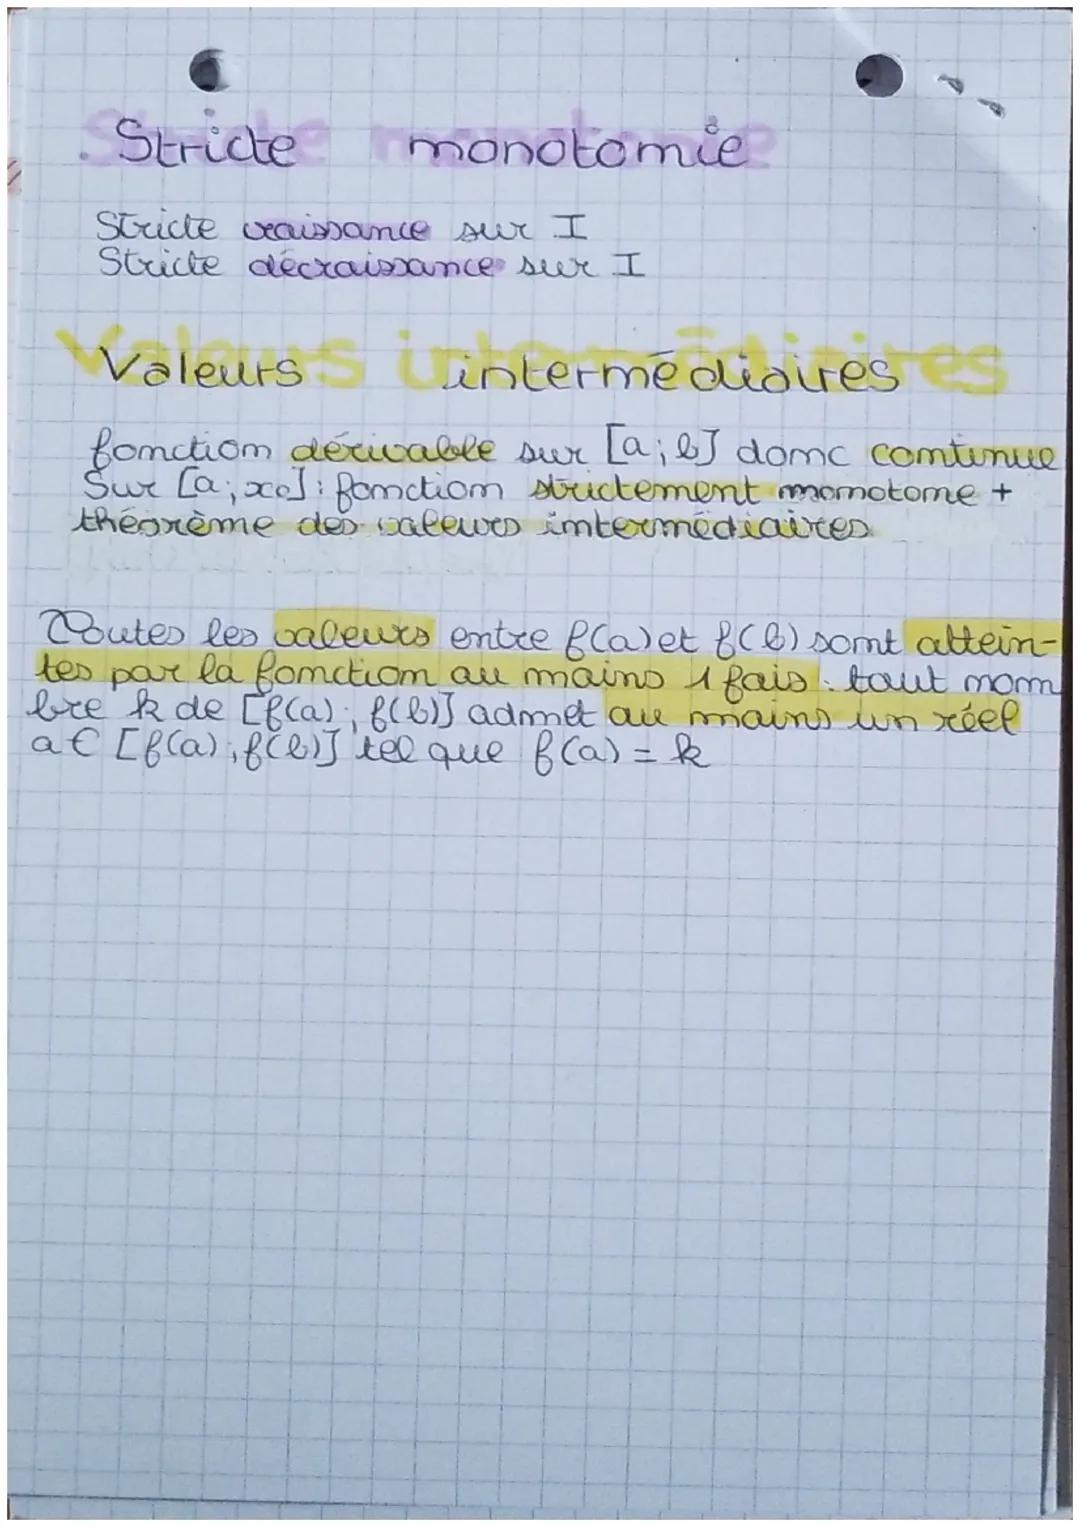 Stricte monotomie
Stricte croissance sur I
Stricte décroissance sur I
Valeurs intermédiaires
fonction dérivable sur [a; b] donc continue
Sur [a; x₀] : fonction strictement monotone +
théorème des valeurs intermédiaires
Toutes les valeurs entre f(a) et f(b) sont attein-
tes par la fonction au moins 1 fois : tout nom
bre k de [f(a) ; f(b)] admet au moins un réel
a ∈ [f(a) ; f(b)] tel que f(a) = k